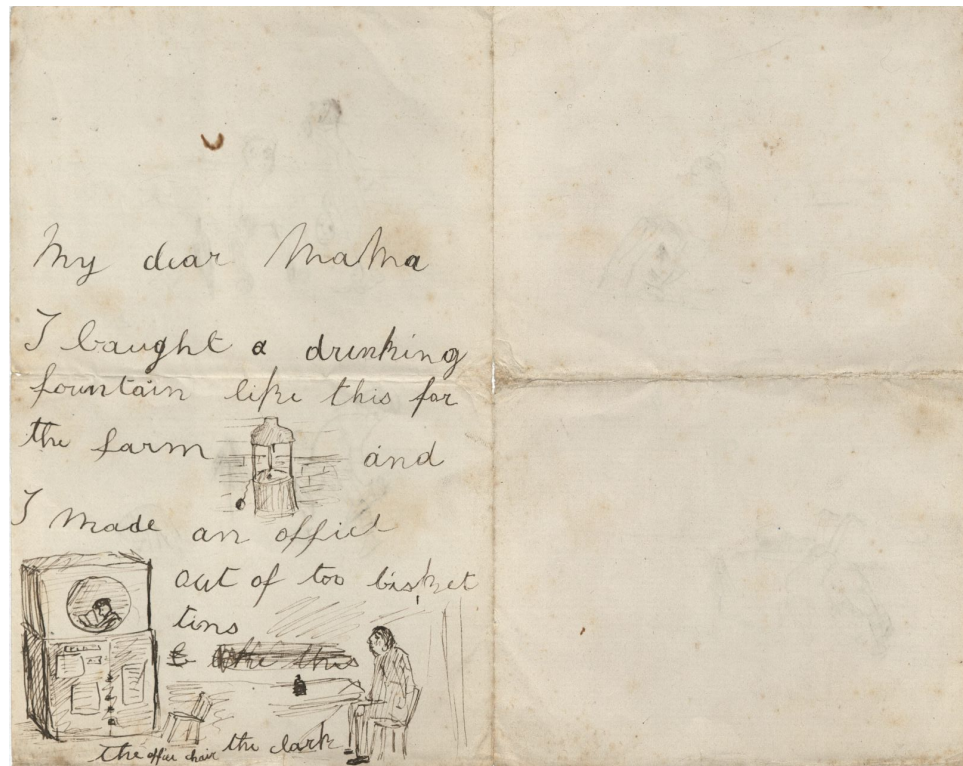 My dear MaMa
I baught a drinking
fountain like this for
the farm and
I made an office
out of too bisket
tins
like this
the office chair the clark